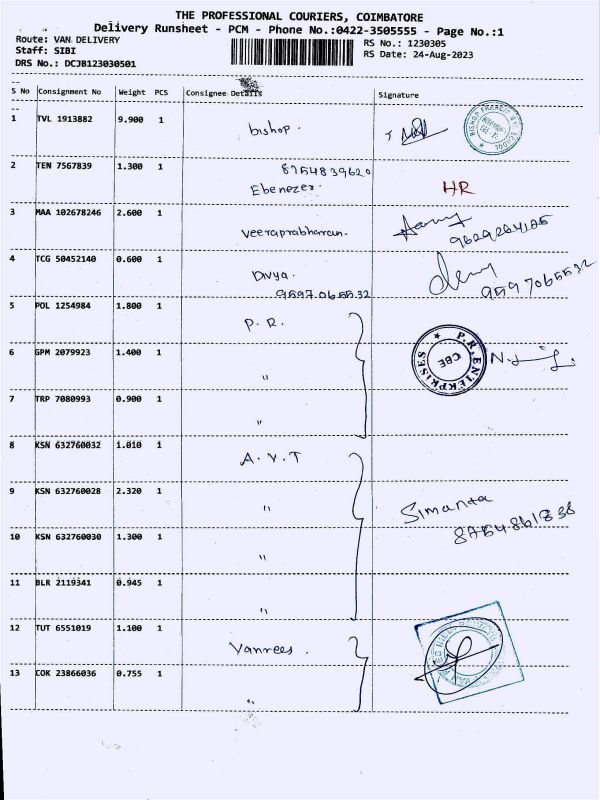 THE PROFESSIONAL COURIERS, COIMBATORE
Delivery Runsheet - PCM - Phone No.:0422-3505555 - Page No.:1
Route: VAN DELIVERY
RS No.: 1230305
Staff: SIBI
RS Date: 24-Aug-2023
DRS No.: DCJB123030501
S No Consignment No Weight PCS Consignee Details Signature
1 TVL 1913882 9.900 1 bishop.
2 TEN 7567839 1.300 1 8754839620
Ebenezer. HR
3 MAA 102678246 2.600 1 veeraprabharan.
4 TCG 50452140 0.600 1 Divya.
9597065532 9597065532
5 POL 1254984 1.800 1 P. R.
P.R. ENTERPRISES
CBE
6 GPM 2079923 1.400 1 "
7 TRP 7080993 0.900 1 "
8 KSN 632760032 1.010 1 A. V. T
9 KSN 632760028 2.320 1 " Simanta
10 KSN 632760030 1.300 1 "
11 BLR 2119341 0.945 1 "
12 TUT 6551019 1.100 1 Vanrees.
13 COK 23866036 0.755 1 "